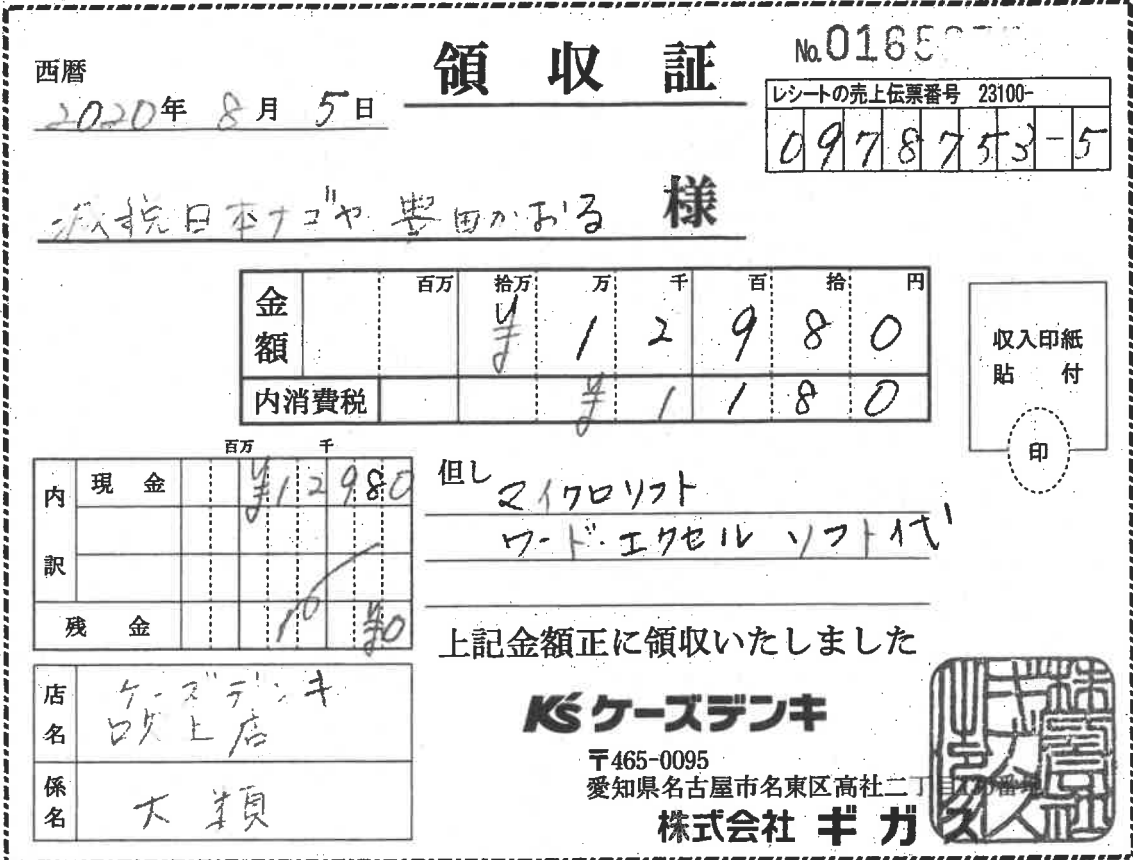 領収証
No.0165
西暦
2020年 8月 5日
レシートの売上伝票番号 23100-
0978753-5
減税日本ナゴヤ 豊田かおる 様
百万 拾万 万 千 百 拾 円
金額 ¥12980
内消費税 ¥1180
収入印紙
貼付
印
百万 千
内訳
現金 ¥12980
残金 ¥0
但し マイクロソフト
ワード・エクセル ソフト代
上記金額正に領収いたしました
店名 ケーズデンキ
吹上店
係名 大類
K'sケーズデンキ
〒465-0095
愛知県名古屋市名東区高社二丁目
株式会社 ギガス